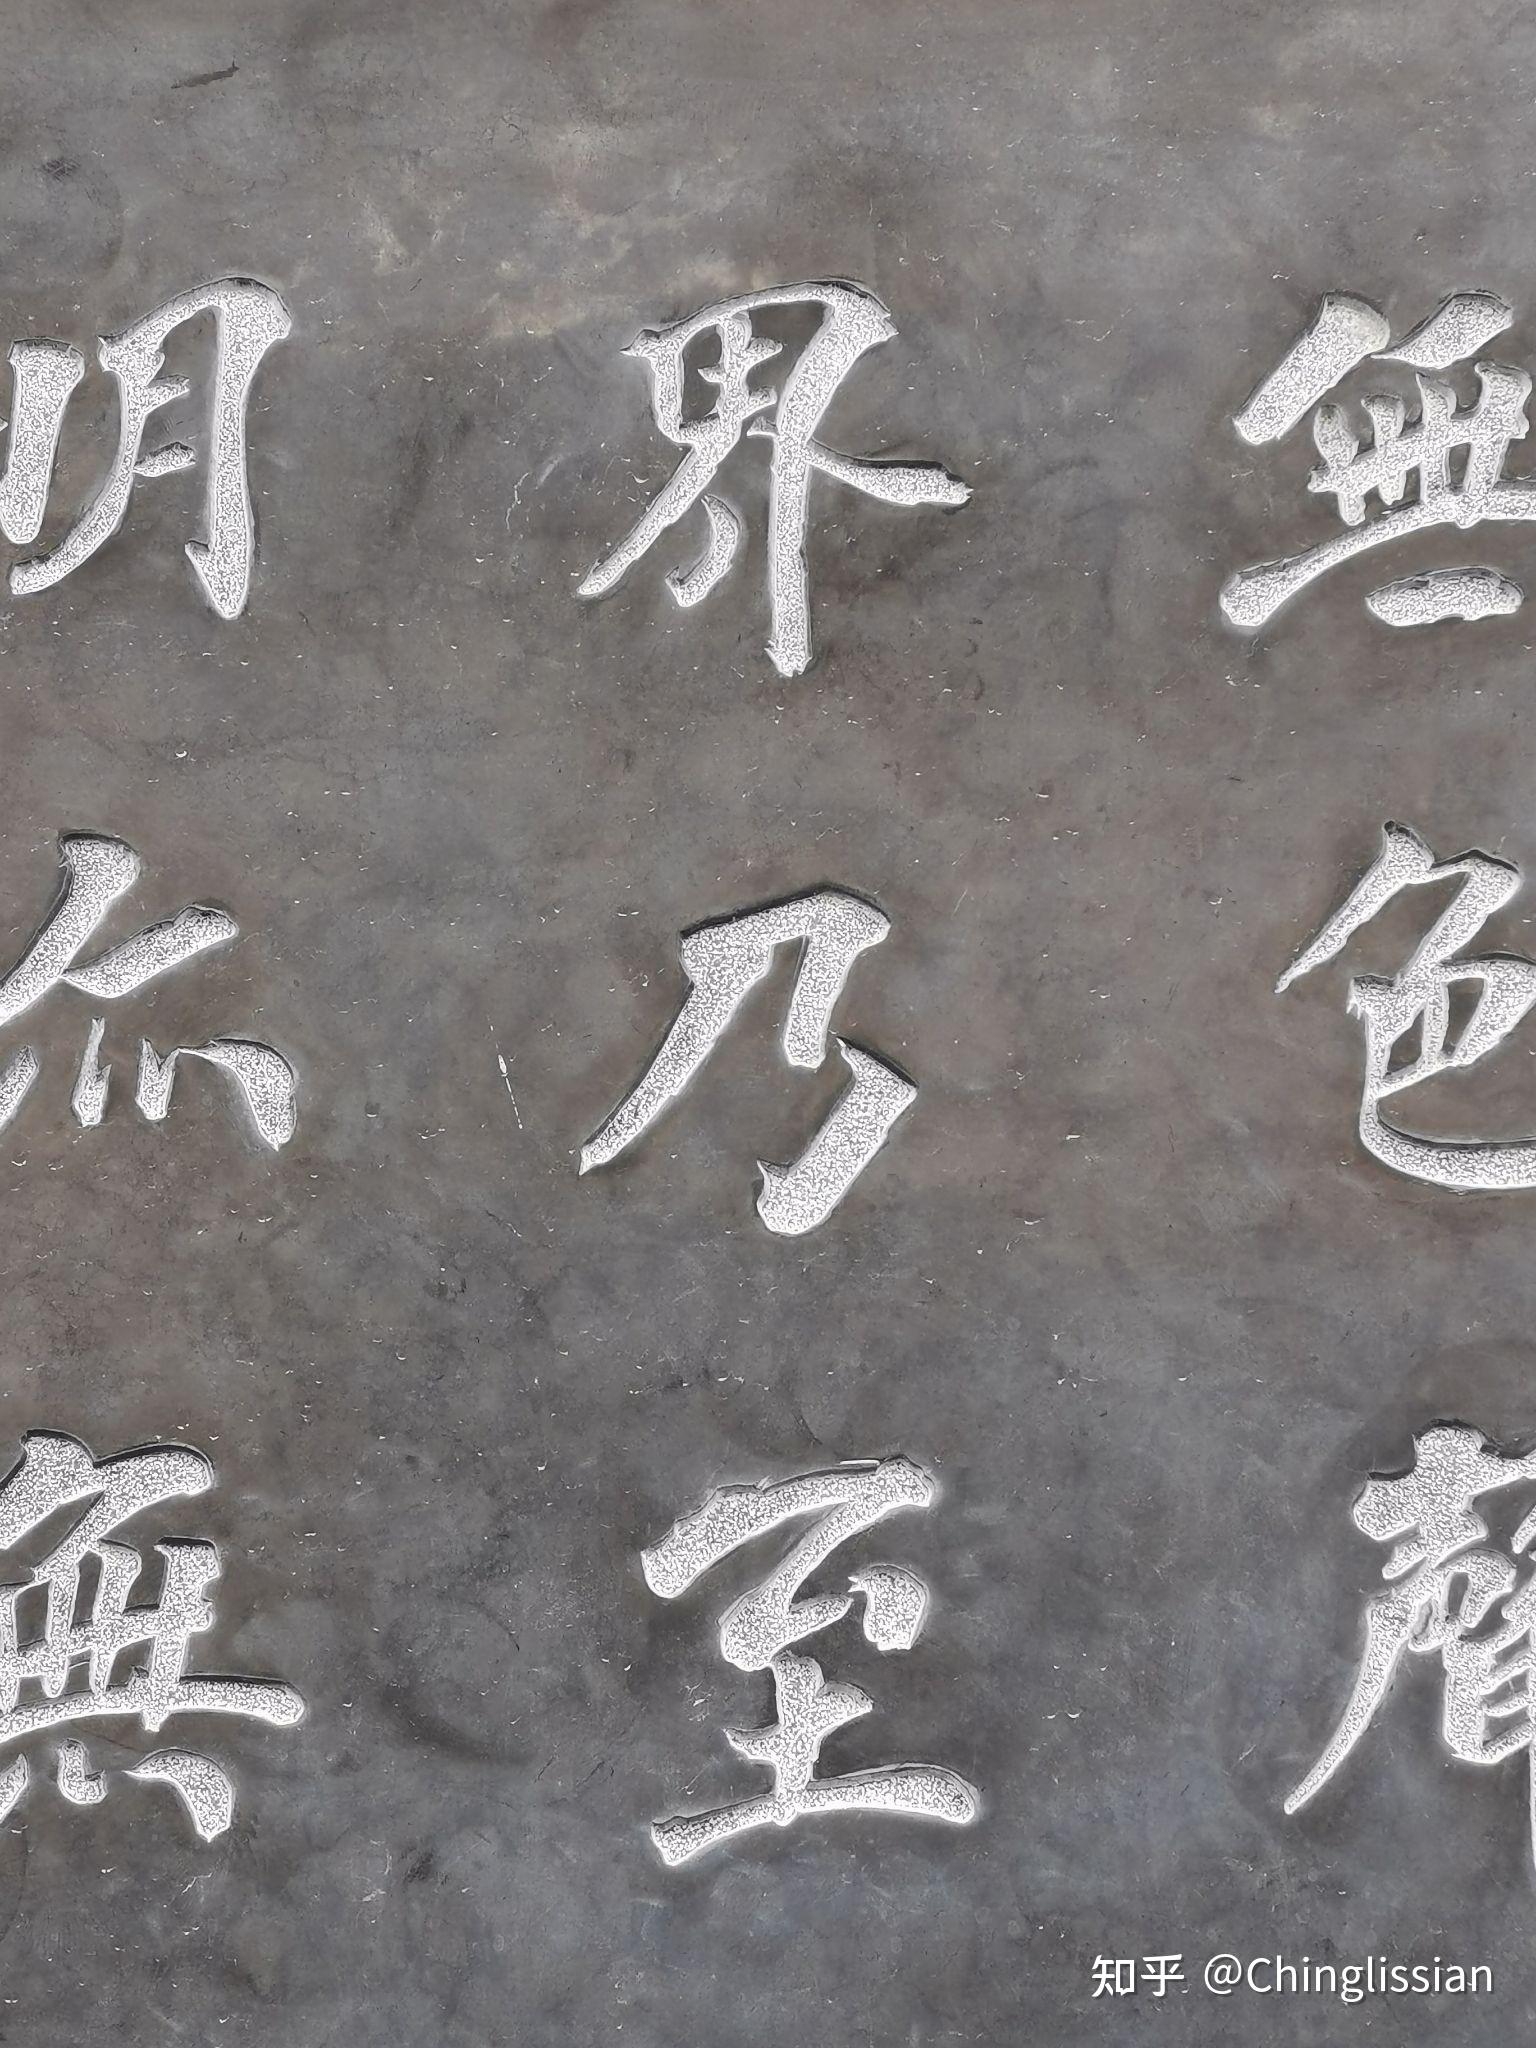 無色聲
界乃至
明亦無
知乎 @Chinglissian